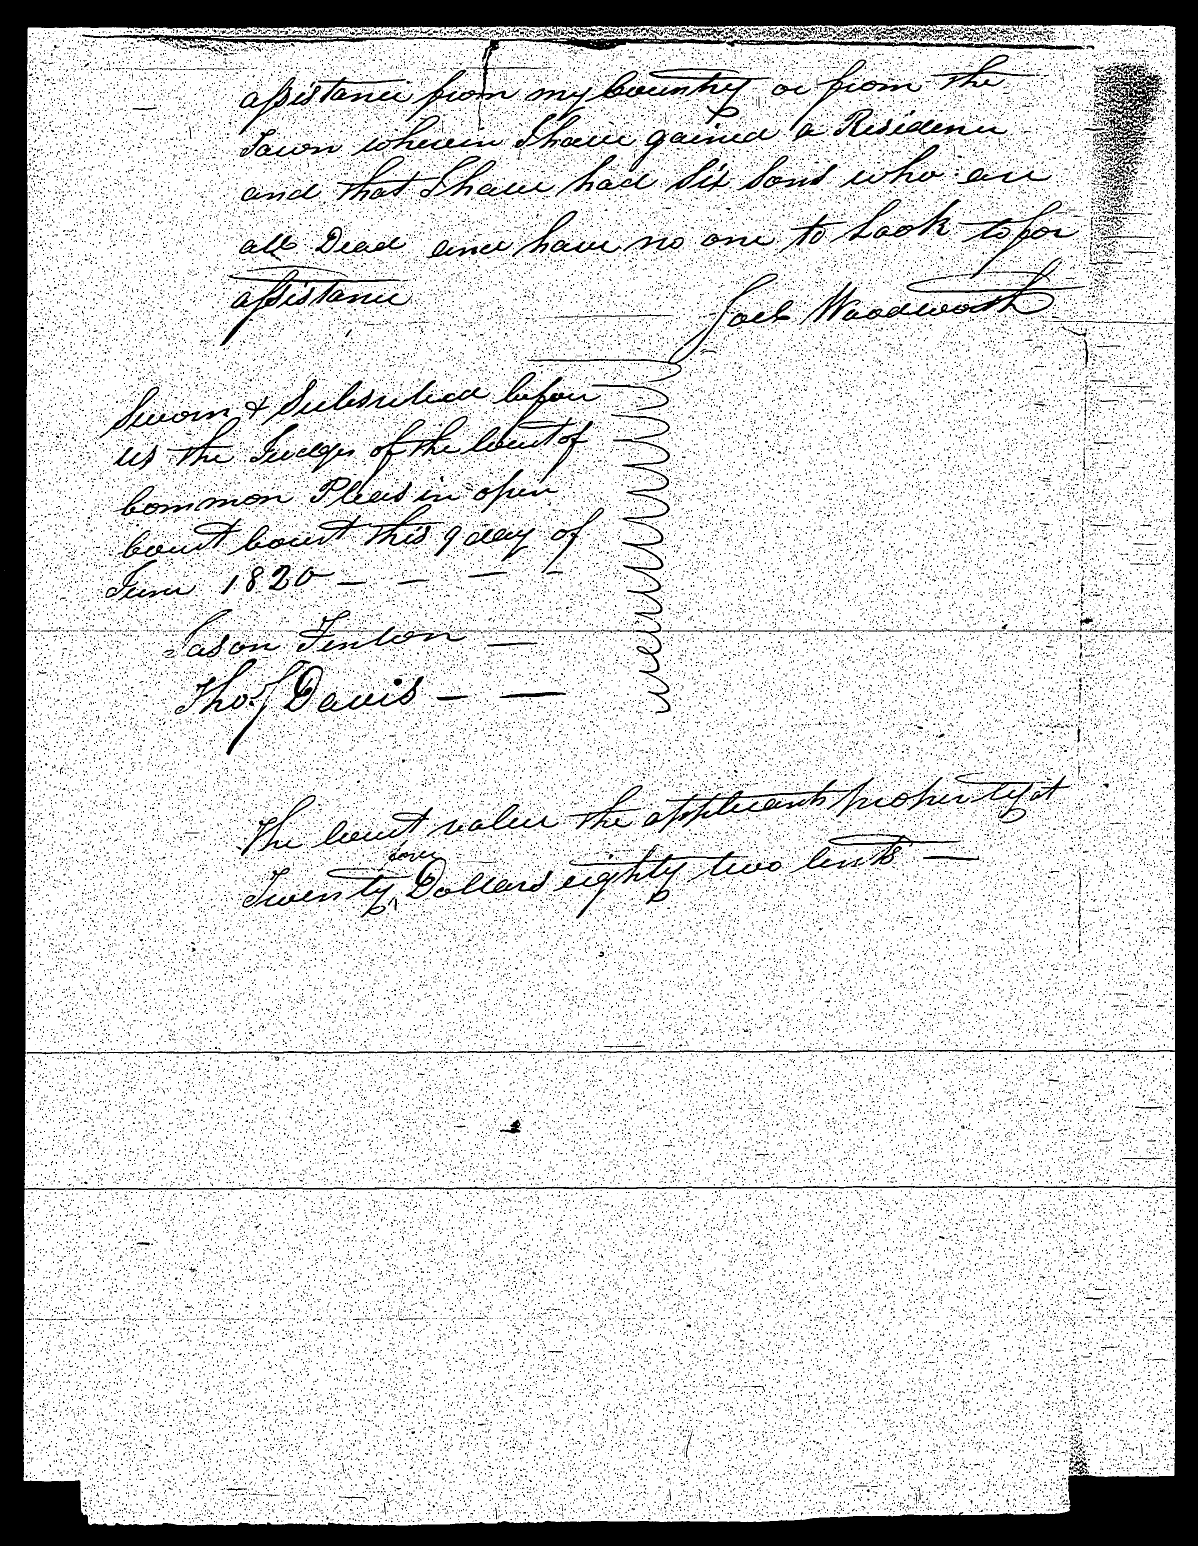 assistance from my Country or from the
Town wherein I have gained a Residence
and that I have had Six Sons who are
all Dead and have no one to Look to for
assistance
Joel Woodworth
Sworn & Subscribed before
us the Judges of the Court of
Common Pleas in open
Court Court this 9 day of
June 1820
Jason Fenton
Thos. Davis
The Court value the applicants property at
Twenty Dollars eighty two Cents